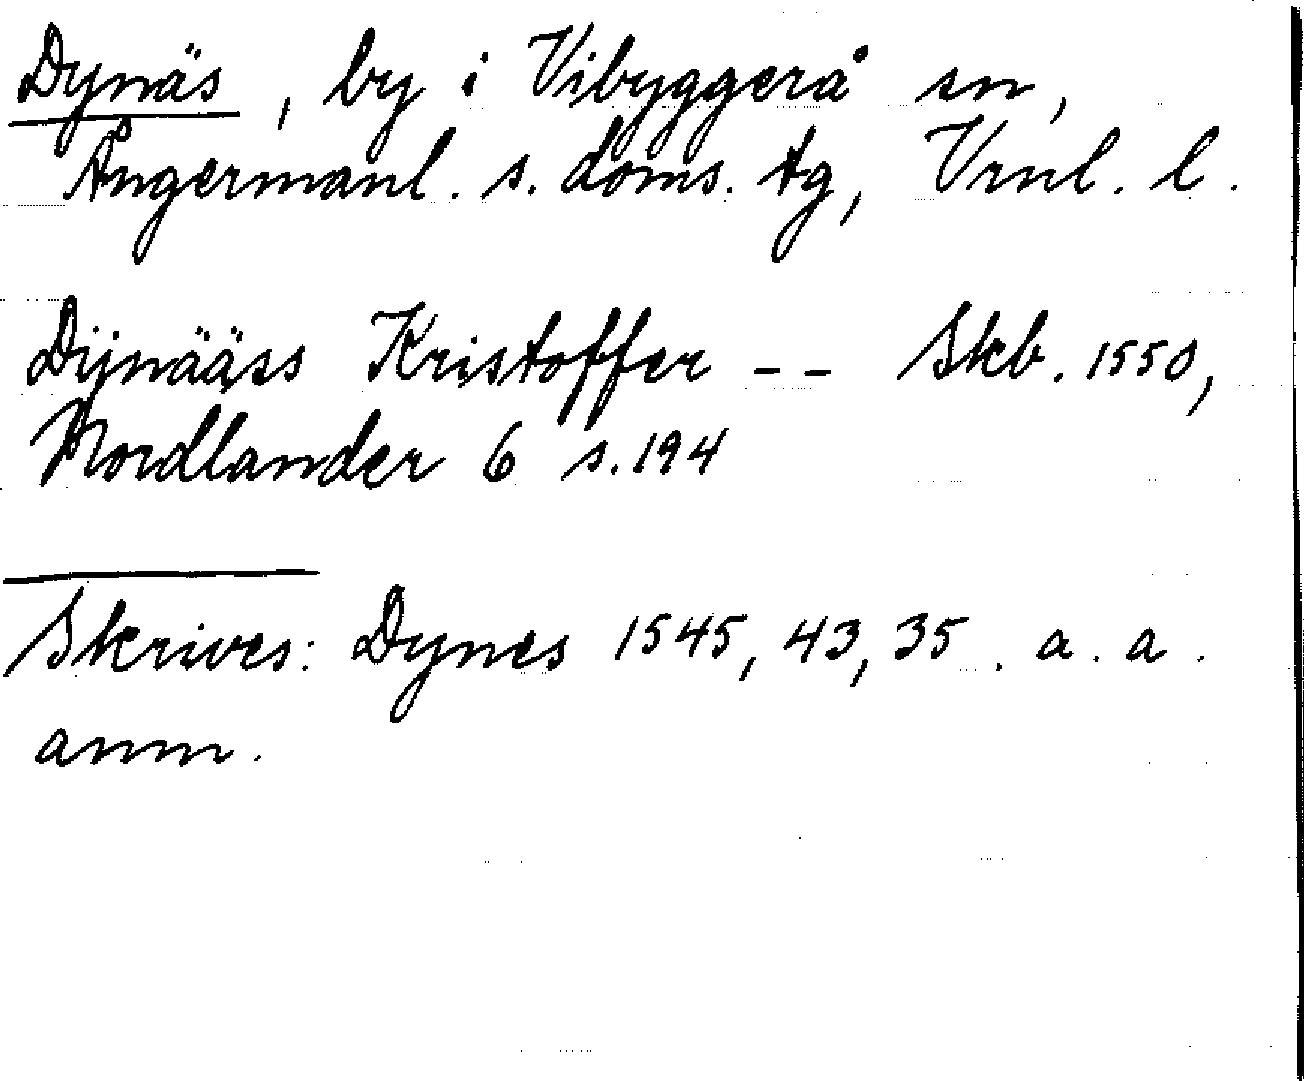 Dynäs, by i Vibyggerå sn,
Ångermanl. s. doms. tg, Vrnl. l.
Dijnääss Kristoffer -- Skb. 1550,
Nordlander 6 s. 194
Skrives: Dynes 1545, 43, 35. a. a.
anm.